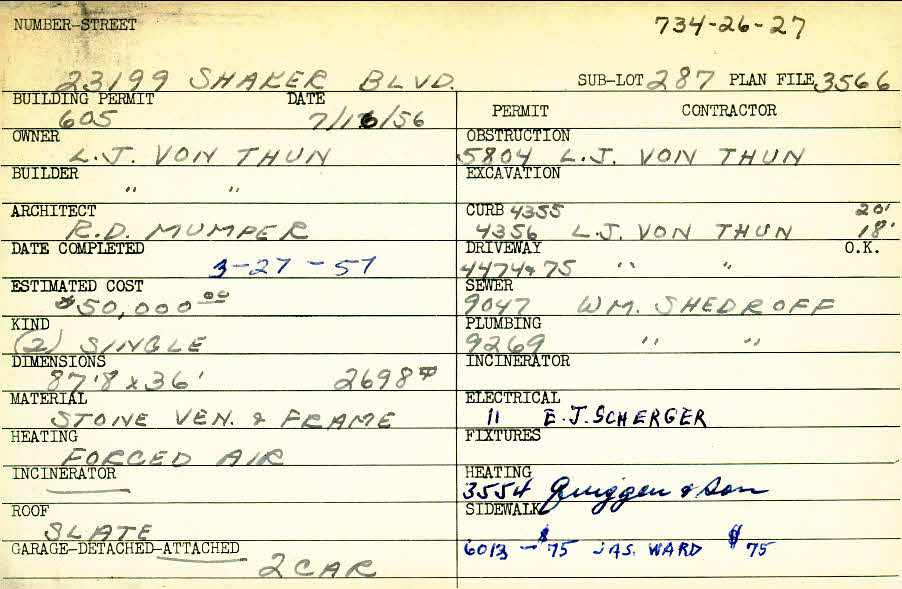 NUMBER-STREET 734-26-27
23199 SHAKER BLVD. SUB-LOT 287 PLAN FILE 3566
BUILDING PERMIT DATE
605 7/16/56
OWNER
L.J. VON THUN
BUILDER
" "
ARCHITECT
R.D. MUMPER
DATE COMPLETED
3-27-57
ESTIMATED COST
$50,000 00
KIND
(2) SINGLE
DIMENSIONS
87'8 x 36' 2698 #
MATERIAL
STONE VEN. & FRAME
HEATING
FORCED AIR
INCINERATOR
ROOF
SLATE
GARAGE-DETACHED-ATTACHED
2 CAR
PERMIT CONTRACTOR
OBSTRUCTION
5804 L.J. VON THUN
EXCAVATION
CURB 4355 20'
4356 L.J. VON THUN 18'
DRIVEWAY O.K.
4474 & 75 " "
SEWER
9047 WM. SHEDROFF
PLUMBING
9269 " "
INCINERATOR
ELECTRICAL
11 E.J. SCHERGER
FIXTURES
HEATING
3554 Quiggen & Son
SIDEWALK
6013 - $75 JAS. WARD $75